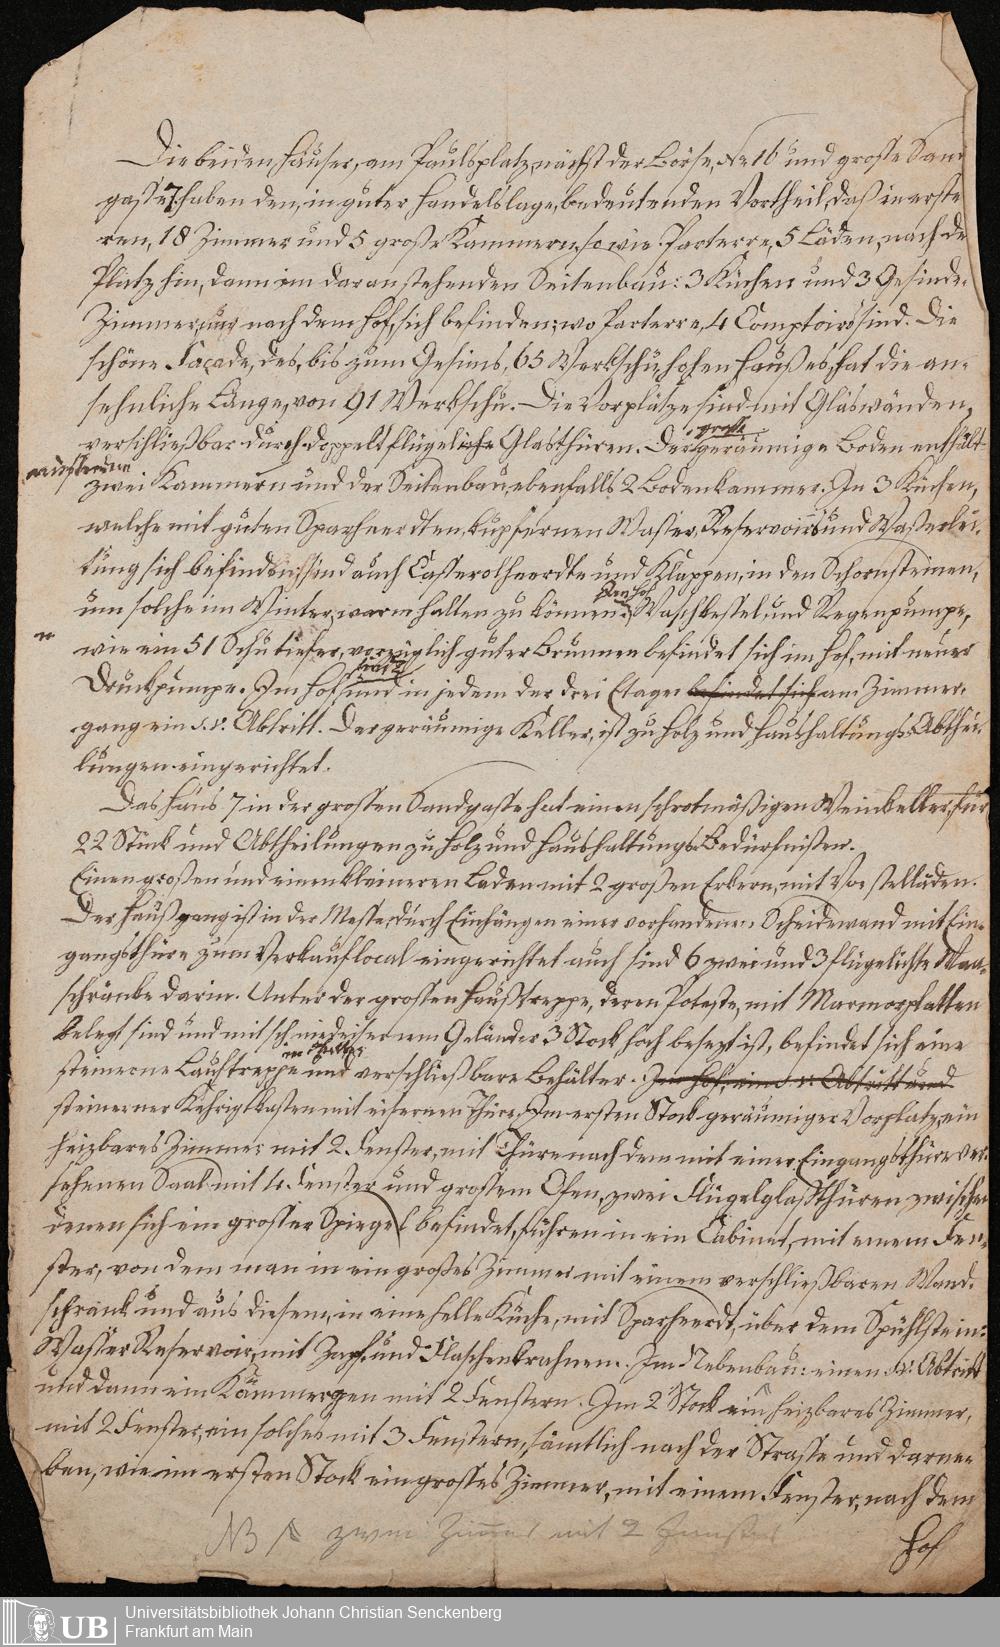 Die beiden Häuser, am Paulsplatz, nächst der Börse, No 16 und große Sand
gaße 7. haben den, in guter Handelslage, bedeutenden Vortheil, daß in erste
ren, 18 Zimmer und 5 große Kammern, sowie Parterre, 5 Läden, nach de
Platz hin, dann im daranstehenden Seitenbau: 3 Küchen und 3 Gesinde-
Zimmer, nach dem Hof, sich befinden; wo Parterre, 4 Comptoirs sind. Die
schöne Façade, des, bis zum Gesims, 65 Werkschu hohen Haußes, hat die an-
sehnliche Länge, von 91 Werkschu. Die Vorplätze sind mit Glaswänden,
verschließbar durch doppelt flügeliche Glasthüren. Der große geräumige Boden enthält
zwei Kammern und der Seitenbau, ebenfalls 2 Bodenkammer. In 3 Küchen,
welche mit guten Sparheerdten, kupfernen Wasser Reservoirs und Waßerlei-
tung sich befinden, sind auch Casserolheerdte und Klappen, in den Schornsteinen,
um solche im Winter, warm halten zu können. Waschkessel, und Regenpumpe,
wie ein 51 Schu tiefer, vorzüglich guter Brunnen befindet sich im Hof, mit neuer
Druckpumpe. Im Hof, und in jedem der drei Etagen befindet sich am Zimmer-
gang ein s.v. Abtritt. Der geräumige Keller, ist zu Holz und Haushaltungs-Abthei-
lungen eingerichtet.
Das Haus 7 in der grossen Sandgasse hat einen schrotmäßigen Weinkeller, für
22 Stück und Abtheilungen zu Holz und Haushaltungs-Bedürfnißen.
Einen großen und einen kleineren Laden mit 2 großen Erkern, mit Vorstelläden.
Der Haußgang ist in der Messe, durch Einhängen einer vorhandenen Scheidewand mit Ein-
gangsthüre zum Verkauflocal eingerichtet auch sind 6 zwei und 3 flügelichte Waa-
schränke darin. Unter der grossen Haustreppe, deren Poteste, mit Marmorplatten
belegt sind und mit schmiedeisernem Geländer 3 Stock hoch besezt ist, befindet sich eine
steinerne Lauftreppe und verschließbare Behälter. Im Hof, ein s.v. Abtritt und
steinerner Kehrigtkasten mit eisernen Thüre. Im ersten Stock geräumiger Vorplatz, ein
heizbares Zimmer mit 2 Fenster, mit Thüre nach dem mit einer Eingangsthüre ver-
sehenen Saal mit 4 Fenster und grossem Ofen, zwei Flügelglaßthüren zwischen
denen sich ein grosser Spiegel befindet, führen in ein Cabinet, mit einem Fen-
ster, von dem man in ein großes Zimmer mit einem verschließbaren Wand-
schrank und aus diesem, in eine helle Küche, mit Sparheerdt, über dem Spühlstein:
Wasser Reservoir, mit Zapf und Flaschenkrahnen. Im Nebenbau: einen s.v. Abtritt
und dann ein Kämmergen mit 2 Fenstern. Im 2 Stock ein heizbares Zimmer,
mit 2 Fenster, ein solches mit 3 Fenstern, sämtlich nach der Strasse und darne-
ben, wie im ersten Stock ein grosses Zimmer, mit einem Fenster, nach dem
NB zwei Zimmer mit 2 Fenster
Hof
UB
Universitätsbibliothek Johann Christian Senckenberg
Frankfurt am Main